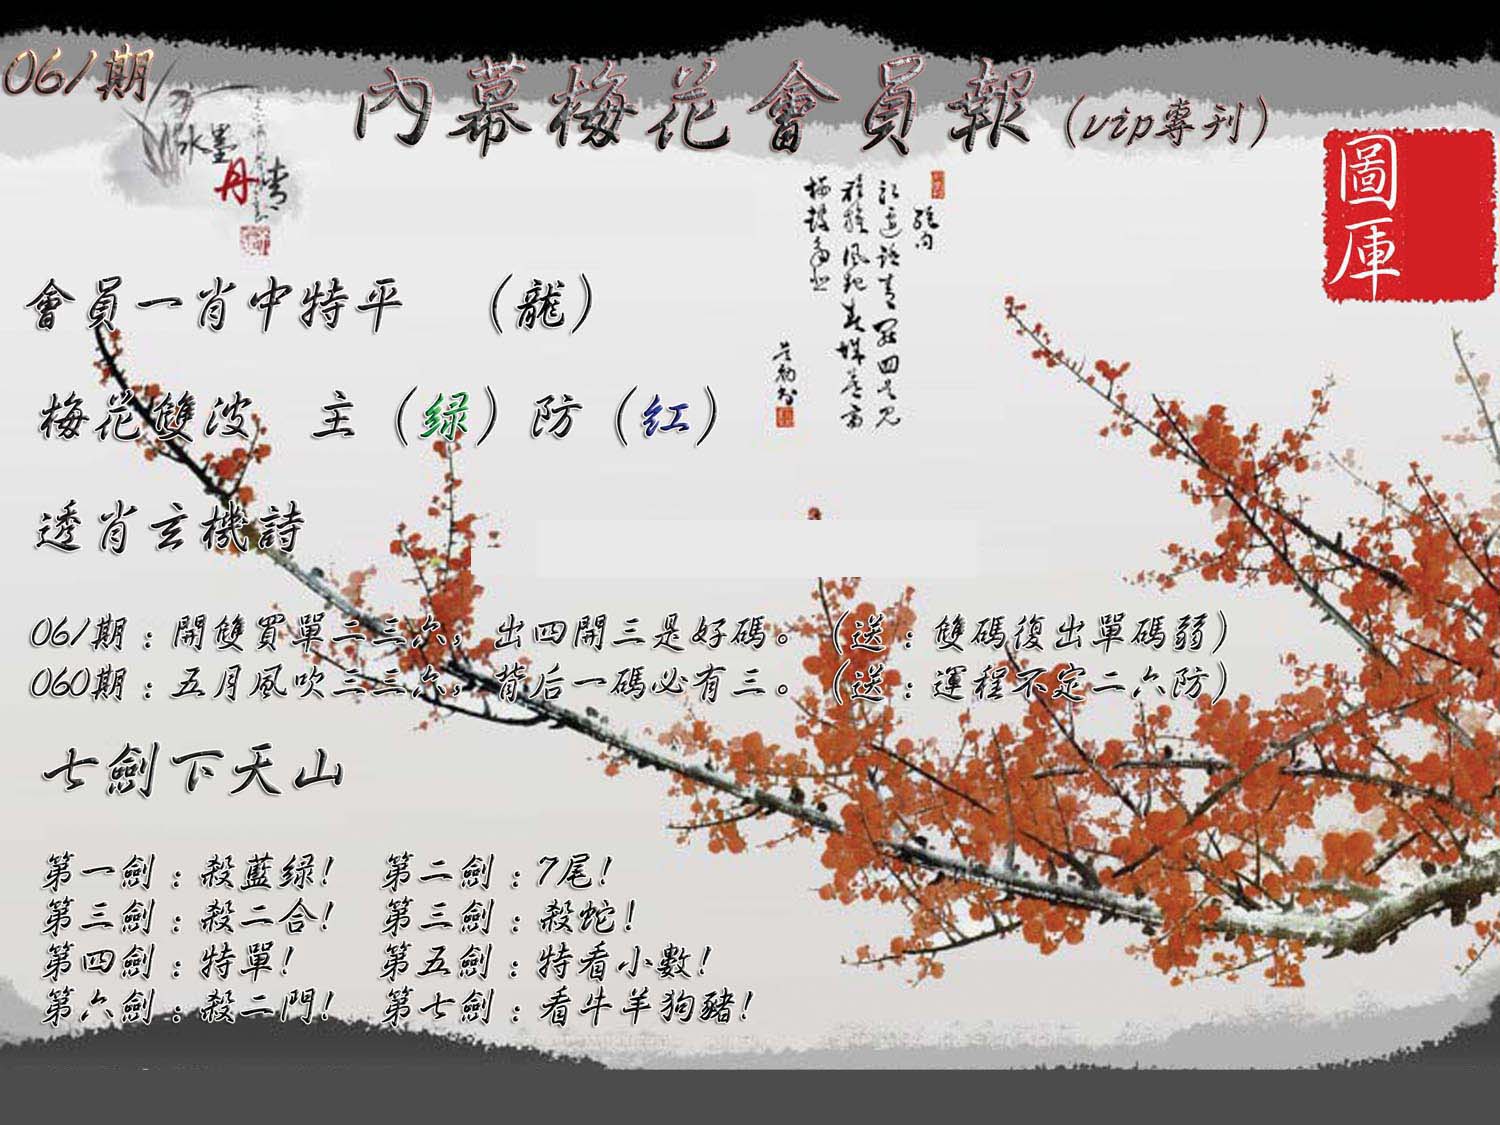 061期
內幕梅花會員報（vip專刊）
水墨
丹青
圖庫
會員一肖中特平　（龍）
梅花雙波　主（绿）防（红）
透肖玄機詩
061期：開雙買單二三六，出四開三是好碼。（送：雙碼復出單碼弱）
060期：五月風吹三三六，背后一碼必有三。（送：運程不定二六防）
七劍下天山
第一劍：殺藍绿！　第二劍：7尾！
第三劍：殺二合！　第三劍：殺蛇！
第四劍：特單！　第五劍：特看小數！
第六劍：殺二門！　第七劍：看牛羊狗豬！